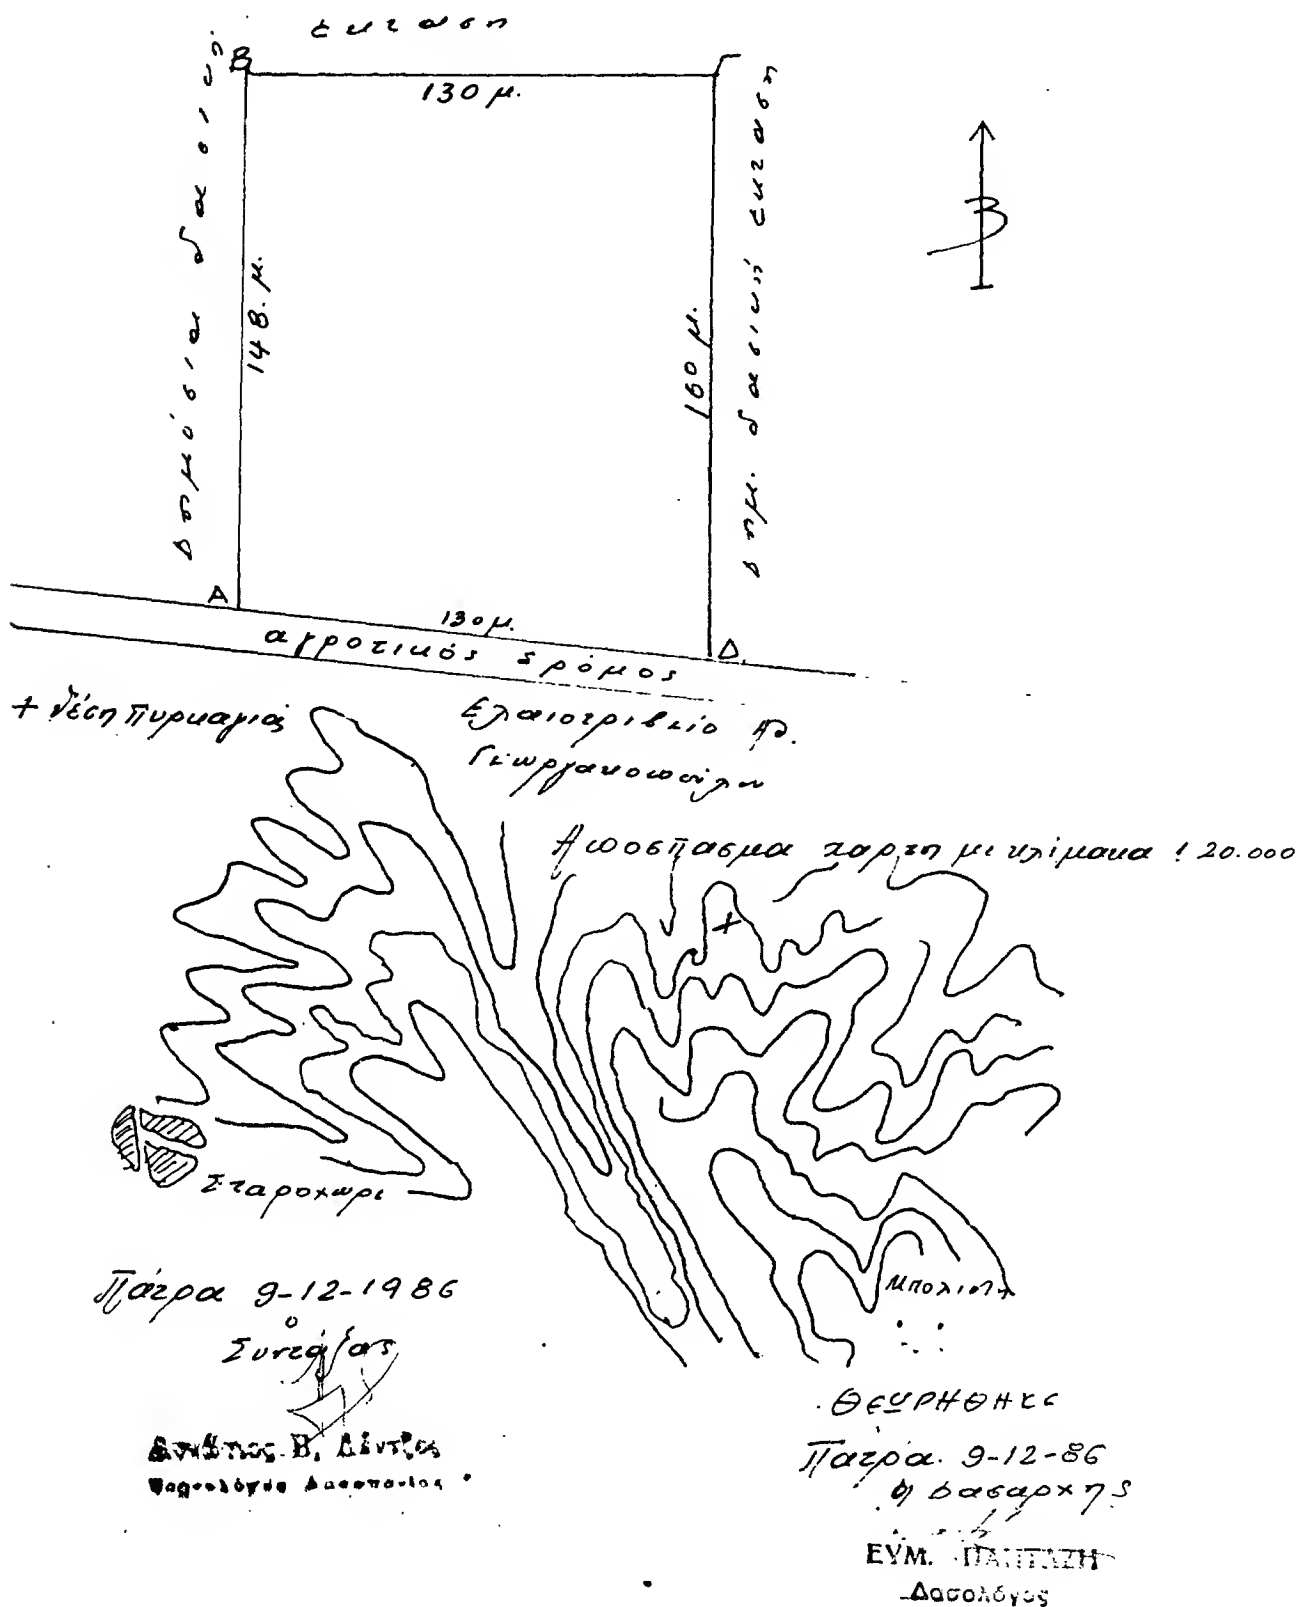 Έκταση
Β
Γ
130 μ.
Δημόσια δασική
148. μ.
160 μ.
Δημ. δασική έκταση
Β
Α
130 μ.
Δ.
αγροτικός δρόμος
+ θέση Πυρκαγιάς
Ελαιοτριβείο
Γεωργακοπούλου
Απόσπασμα χάρτη με κλίμακα 1:20.000
+
Σταροχώρι
Πάτρα 9-12-1986
ο
Συντάξας
Β. Δέντζος
Δασοπονίας
ΘΕΩΡΗΘΗΚΕ
Πάτρα. 9-12-86
Η Δασάρχης
ΕΥΜ. ΠΑΝΤΑΖΗ
Δασολόγος